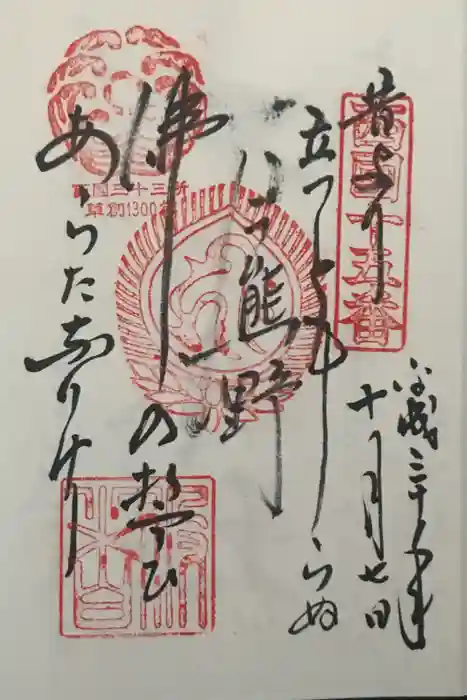 西国十五番
昔より
立つともしらぬ
いま熊野
佛の誓ひ
あらたなりけり
平成三十年
十月七日
西国三十三所
草創1300年